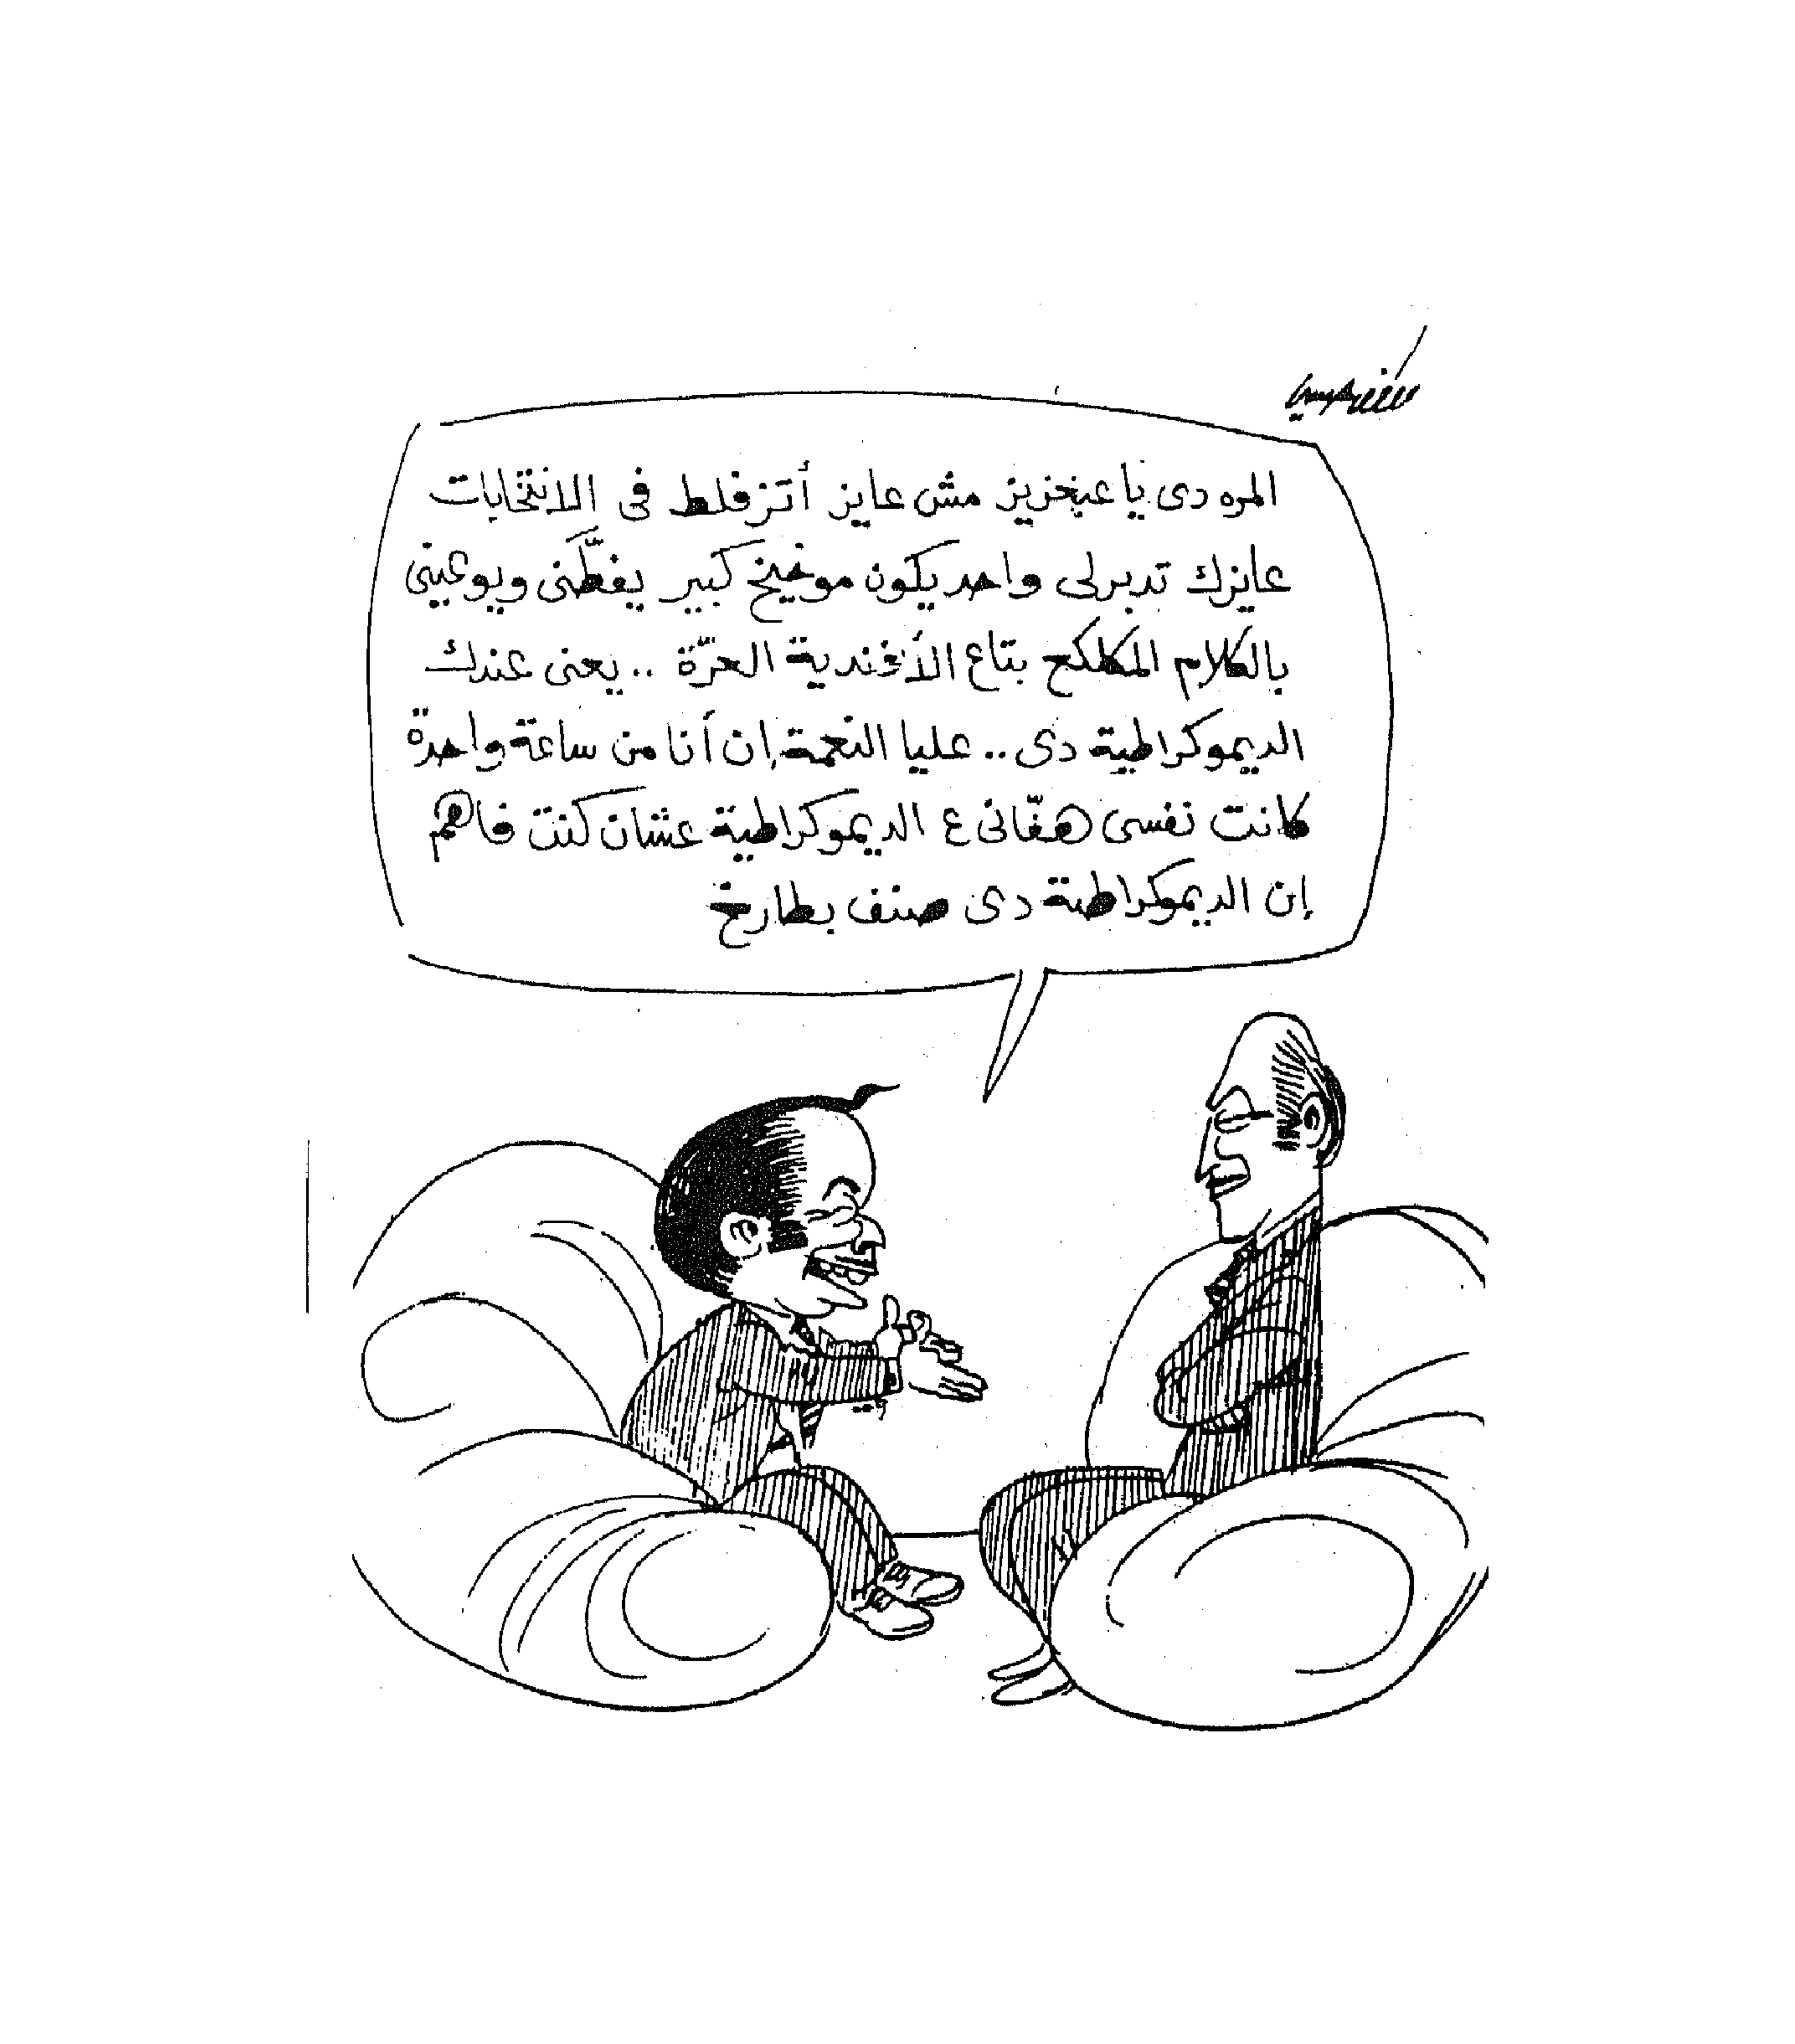 المره دى يا عبخزيز مش عايز أتزفلط فى الانتخابات
عايزك تدبرلى واحد يكون مونخيخ كبير يفطّنى ويوعينى
بالكلام المكلكع بتاع الأفندية العرّة .. يعنى عندك
الديموكراطية دى .. عليا النعمة إن أنا من ساعة واحدة
كانت نفسى هفّانى ع الديموكراطية عشان كنت فاهم
إن الديموكراطية دى صنف بطارخ